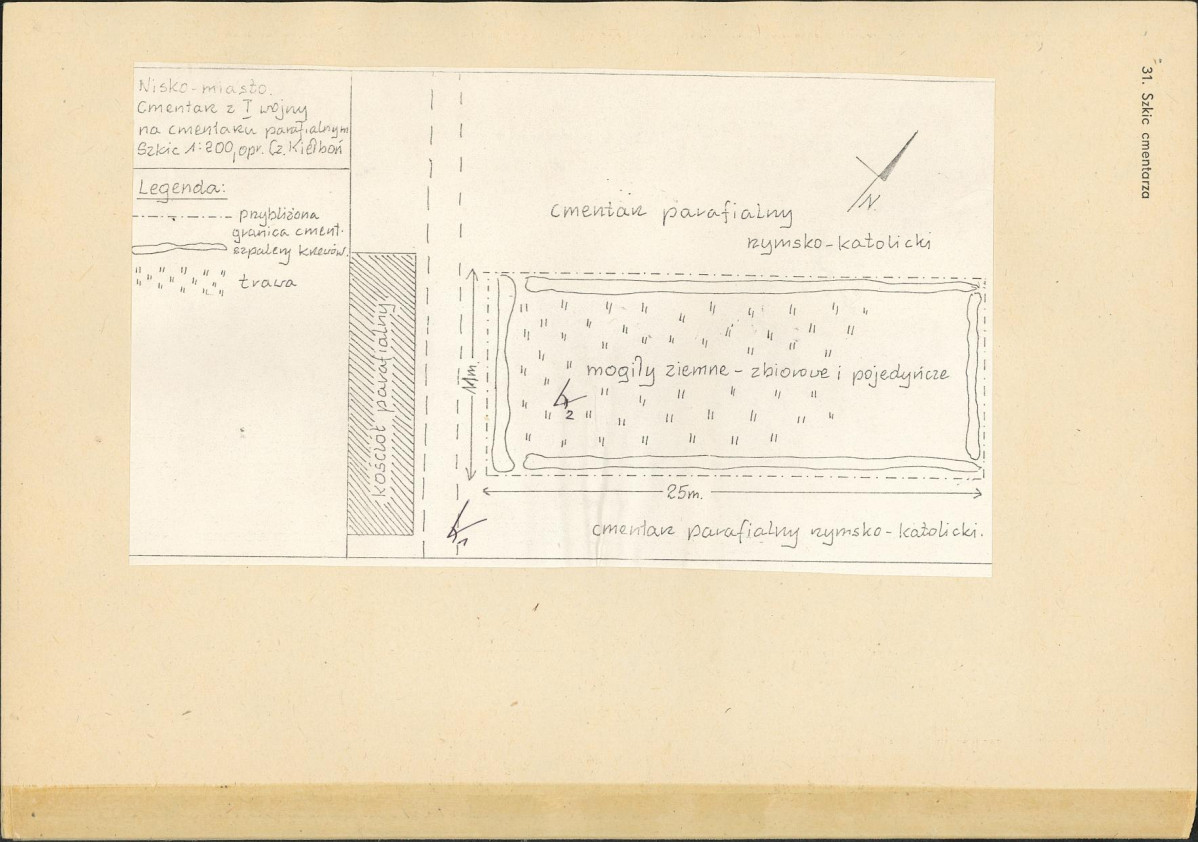 Nisko-miasto.
Cmentarz z I wojny
na cmentarzu parafialnym
Szkic 1:200, opr. Cz. Kiełboń
Legenda:
przybliżona
granica cment.
szpalery krzewów.
trawa
kościół parafialny
cmentarz parafialny
rzymsko-katolicki
11m.
mogiły ziemne - zbiorowe i pojedyńcze
2
25m.
1
cmentarz parafialny rzymsko-katolicki.
N
31. Szkic cmentarza